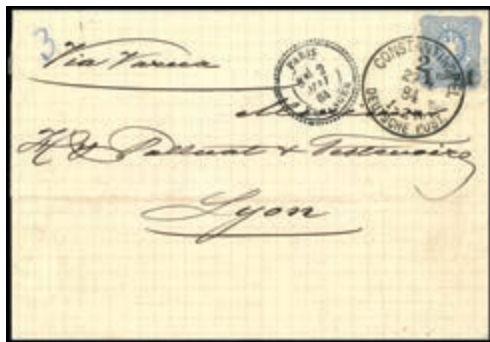 3
Via Varna
PARIS
2
MAI
84
ETRANGER
CONSTANTINOPEL
2
27 4
84
1-2 N
DEUTSCHE POST
H. Y. Palluat & Testenoire
Lyon